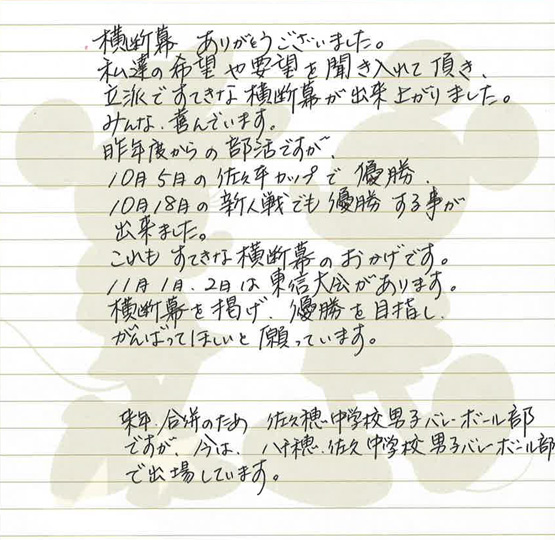 横断幕 ありがとうございました。
私達の希望や要望を聞き入れて頂き、
立派ですてきな横断幕が出来上がりました。
みんな、喜んでいます。
昨年度からの部活ですが、
10月5日の佐久平カップで優勝、
10月18日の新人戦でも優勝する事が
出来ました。
これもすてきな横断幕のおかげです。
11月1日、2日は東信大会があります。
横断幕を掲げ、優勝を目指し、
がんばってほしいと願っています。
来年、合併のため 佐久穂中学校男子バレーボール部
ですが、今は、八千穂・佐久中学校男子バレーボール部
で出場しています。